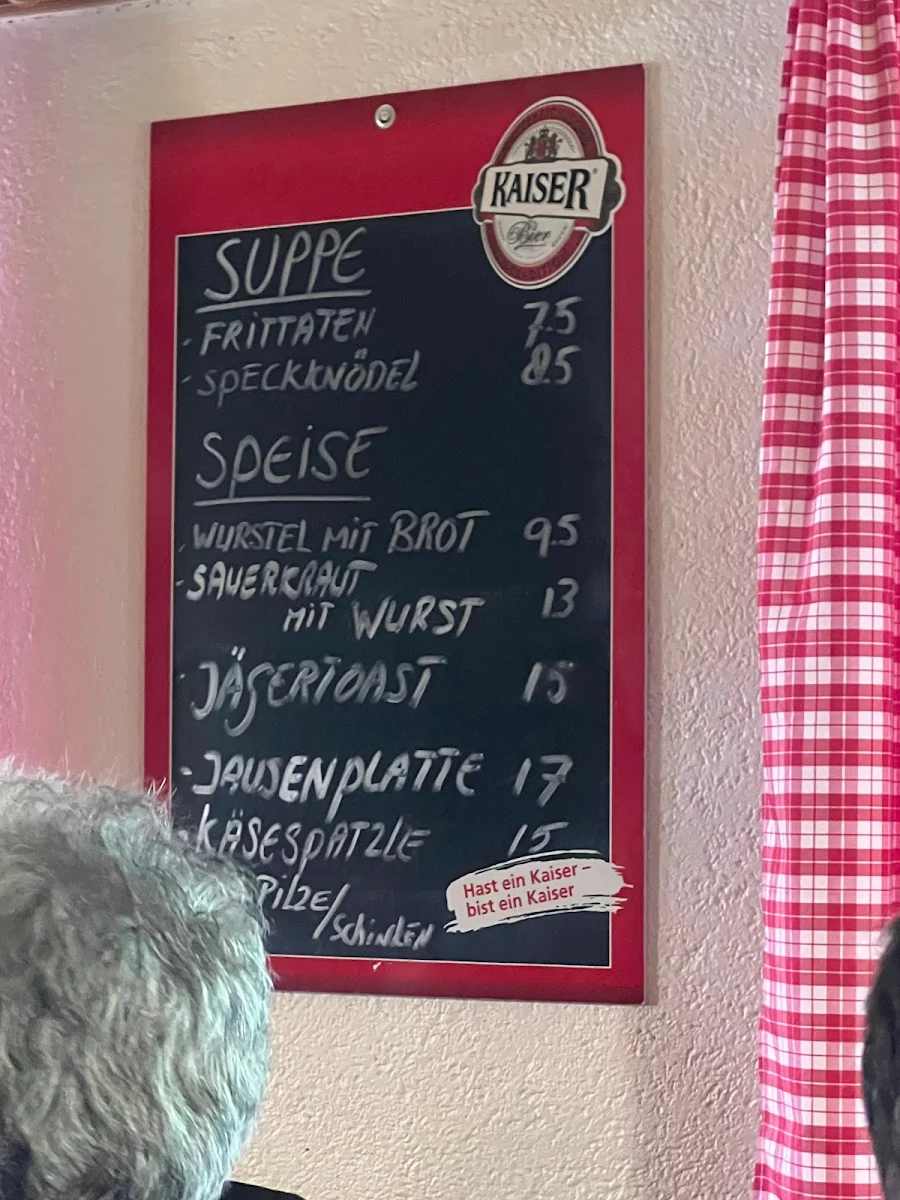 KAISER
Bier
SUPPE
- FRITTATEN 7.5
- SPECKKNÖDEL 8.5
SPEISE
- WURSTEL MIT BROT 9.5
- SAUERKRAUT
MIT WURST 13
- JÄGERTOAST 15
- JAUSENPLATTE 17
- KÄSESPATZLE 15
PilZE/
SchinkEN
Hast ein Kaiser –
bist ein Kaiser